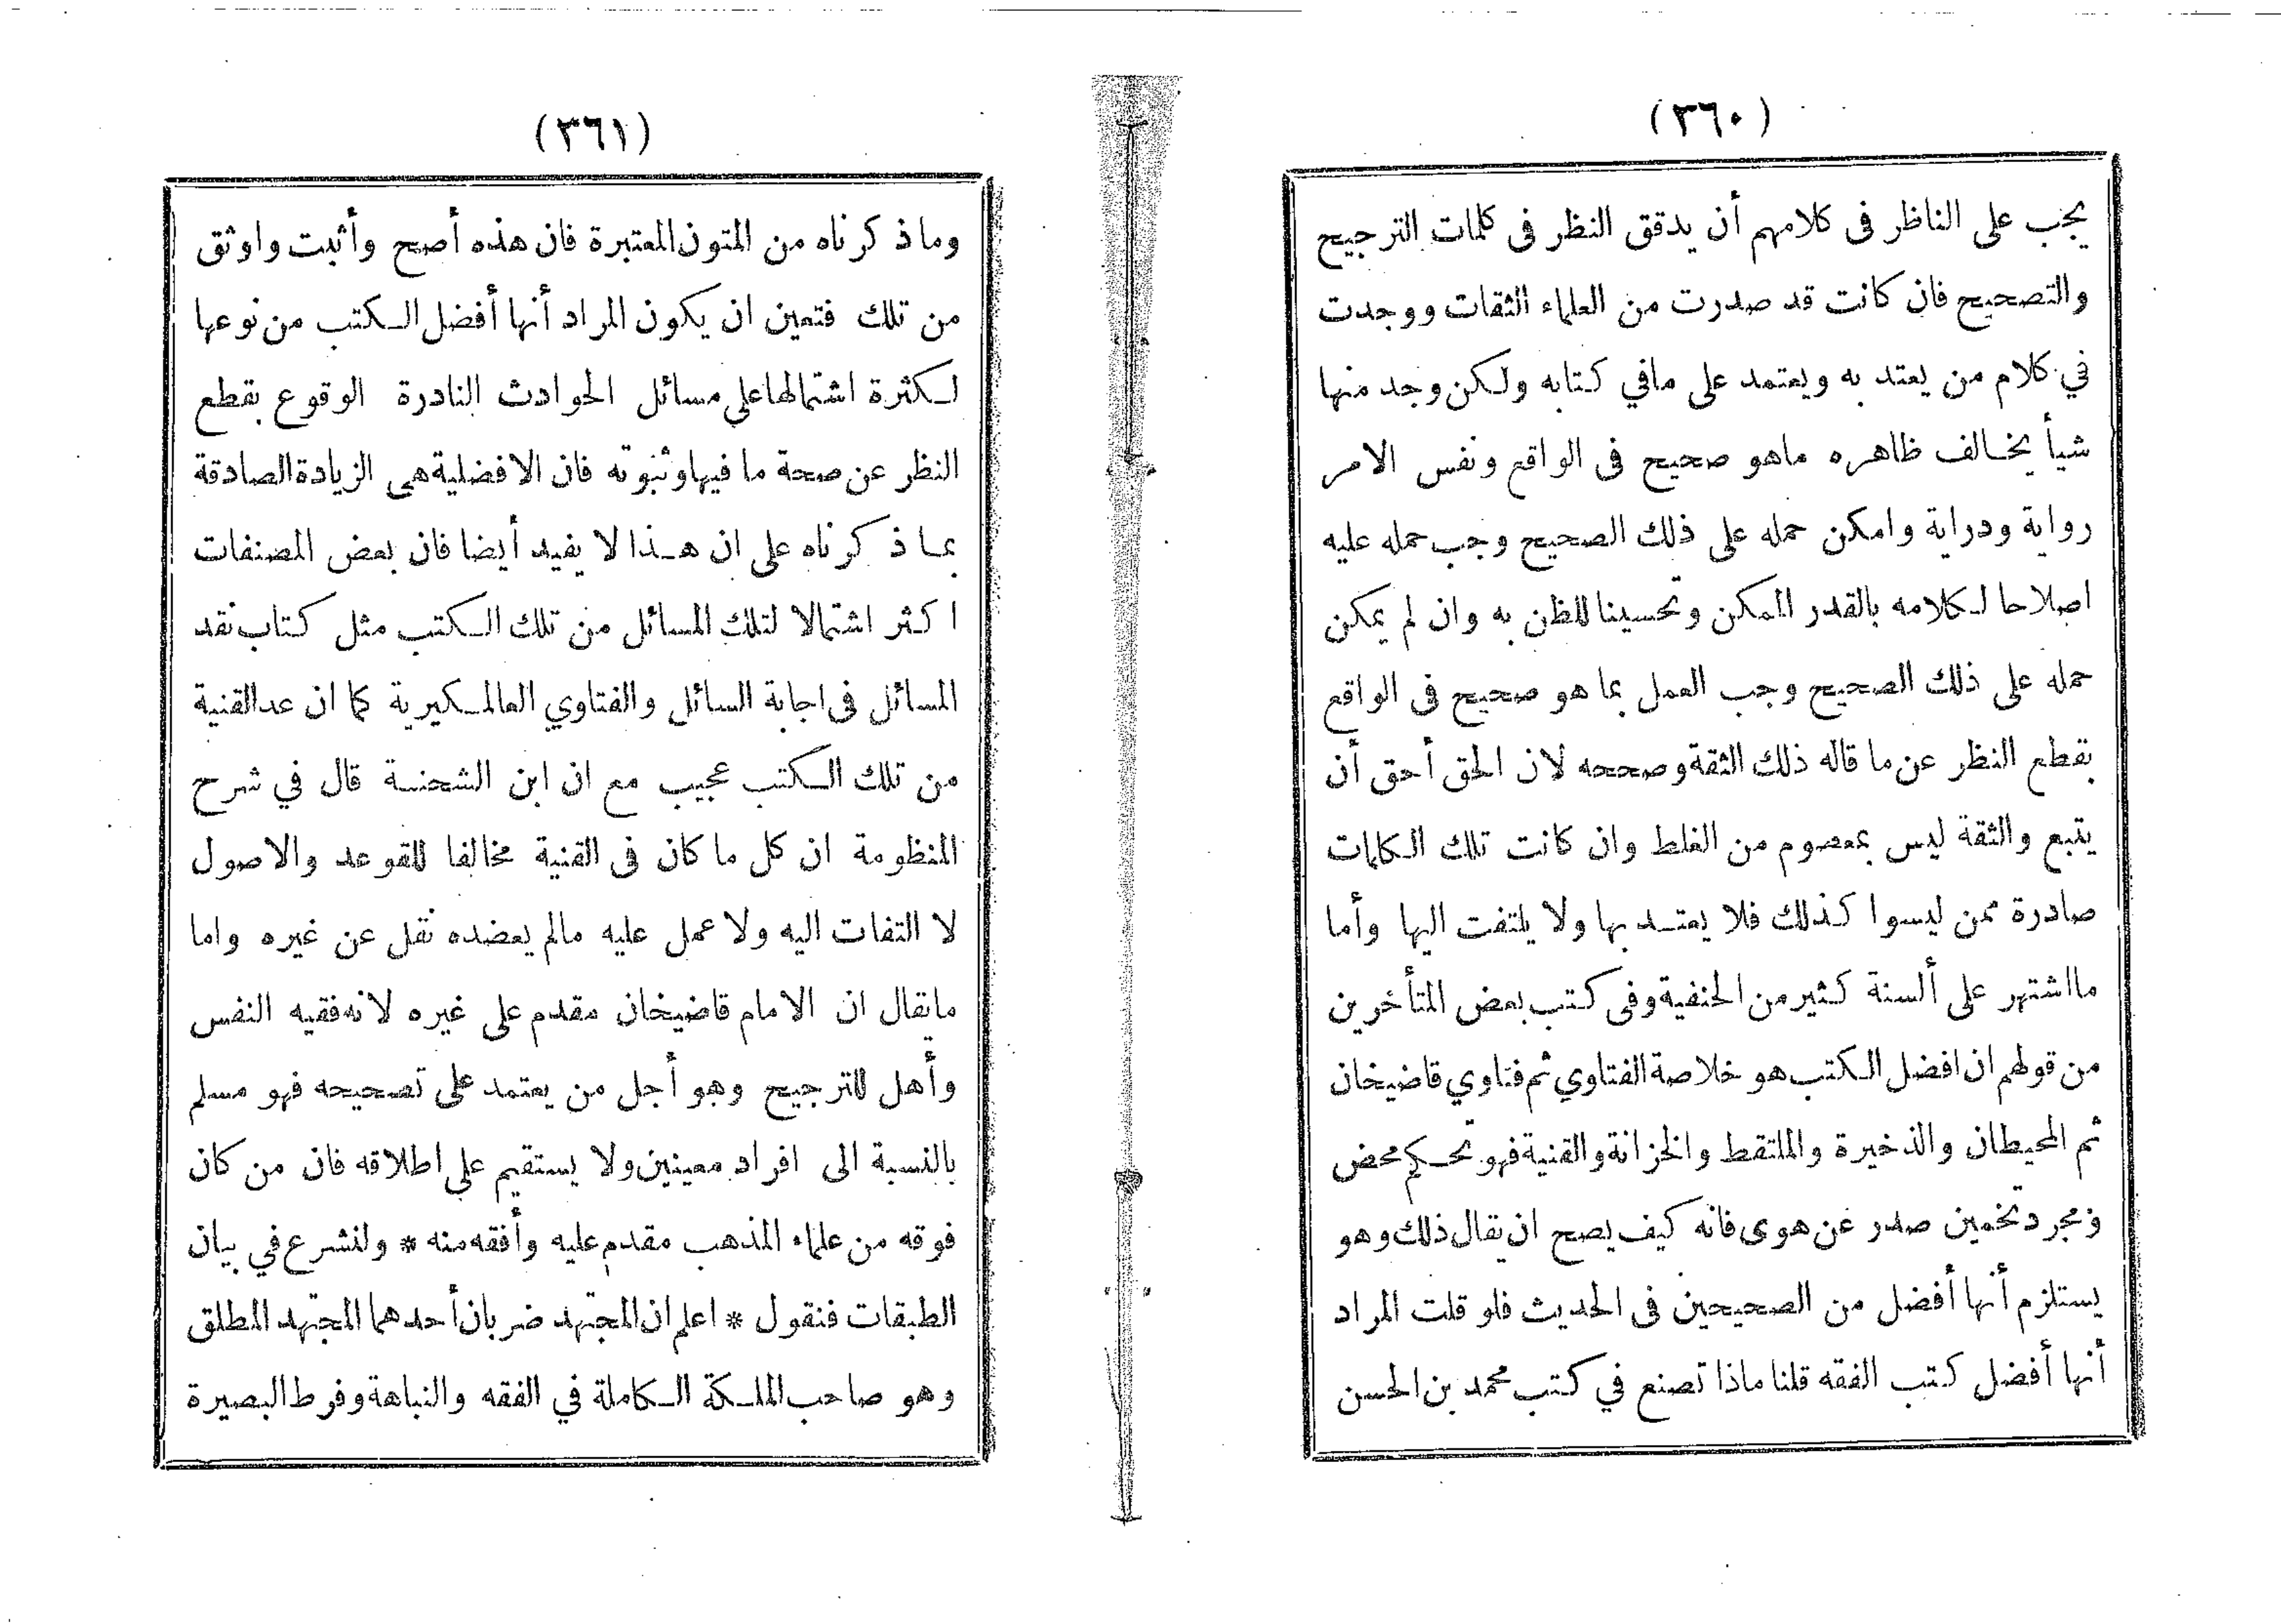 (٣٦٠)
يجب على الناظر فى كلامهم أن يدقق النظر فى كلمات الترجيح
والتصحيح فان كانت قد صدرت من العلماء الثقات ووجدت
في كلام من يعتد به ويعتمد على مافي كتابه ولكن وجد منها
شيأ يخالف ظاهره ماهو صحيح فى الواقع ونفس الامر
رواية ودراية وامكن حمله على ذلك الصحيح وجب حمله عليه
اصلاحا لكلامه بالقدر الممكن وتحسينا للظن به وان لم يمكن
حمله على ذلك الصحيح وجب العمل بما هو صحيح فى الواقع
بقطع النظر عن ما قاله ذلك الثقة وصححه لان الحق أحق أن
يتبع والثقة ليس بمعصوم من الغلط وان كانت تلك الكلمات
صادرة ممن ليسوا كذلك فلا يعتد بها ولا يلتفت اليها وأما
مااشتهر على ألسنة كثير من الحنفية وفى كتب بعض المتأخرين
من قولهم ان افضل الكتب هو خلاصة الفتاوي ثم فتاوي قاضيخان
ثم المحيطان والذخيرة والملتقط والخزانة والقنية فهو تحكم محض
ومجرد تخمين صدر عن هوى فانه كيف يصح ان يقال ذلك وهو
يستلزم أنها أفضل من الصحيحين فى الحديث فلو قلت المراد
أنها أفضل كتب الفقه قلنا ماذا تصنع في كتب محمد بن الحسن
(٣٦١)
وماذكرناه من المتون المعتبرة فان هذه أصح وأثبت واوثق
من تلك فتعين ان يكون المراد أنها أفضل الكتب من نوعها
لكثرة اشتمالها على مسائل الحوادث النادرة الوقوع بقطع
النظر عن صحة ما فيها وثبوته فان الافضلية هى الزيادة الصادقة
بما ذكرناه على ان هذا لا يفيد أيضا فان بعض المصنفات
اكثر اشتمالا لتلك المسائل من تلك الكتب مثل كتاب نقد
المسائل فى اجابة السائل والفتاوي العالمكيرية كما ان عد القنية
من تلك الكتب عجيب مع ان ابن الشحنة قال في شرح
المنظومة ان كل ما كان فى القنية مخالفا للقوعد والاصول
لا التفات اليه ولا عمل عليه مالم يعضده نقل عن غيره واما
مايقال ان الامام قاضيخان مقدم على غيره لانه فقيه النفس
وأهل للترجيح وهو أجل من يعتمد على تصحيحه فهو مسلم
بالنسبة الى افراد معينين ولا يستقيم على اطلاقه فان من كان
فوقه من علماء المذهب مقدم عليه وأفقه منه * ولنشرع في بيان
الطبقات فنقول * اعلم ان المجتهد ضربان أحدهما المجتهد المطلق
وهو صاحب الملكة الكاملة في الفقه والنباهة وفرط البصيرة